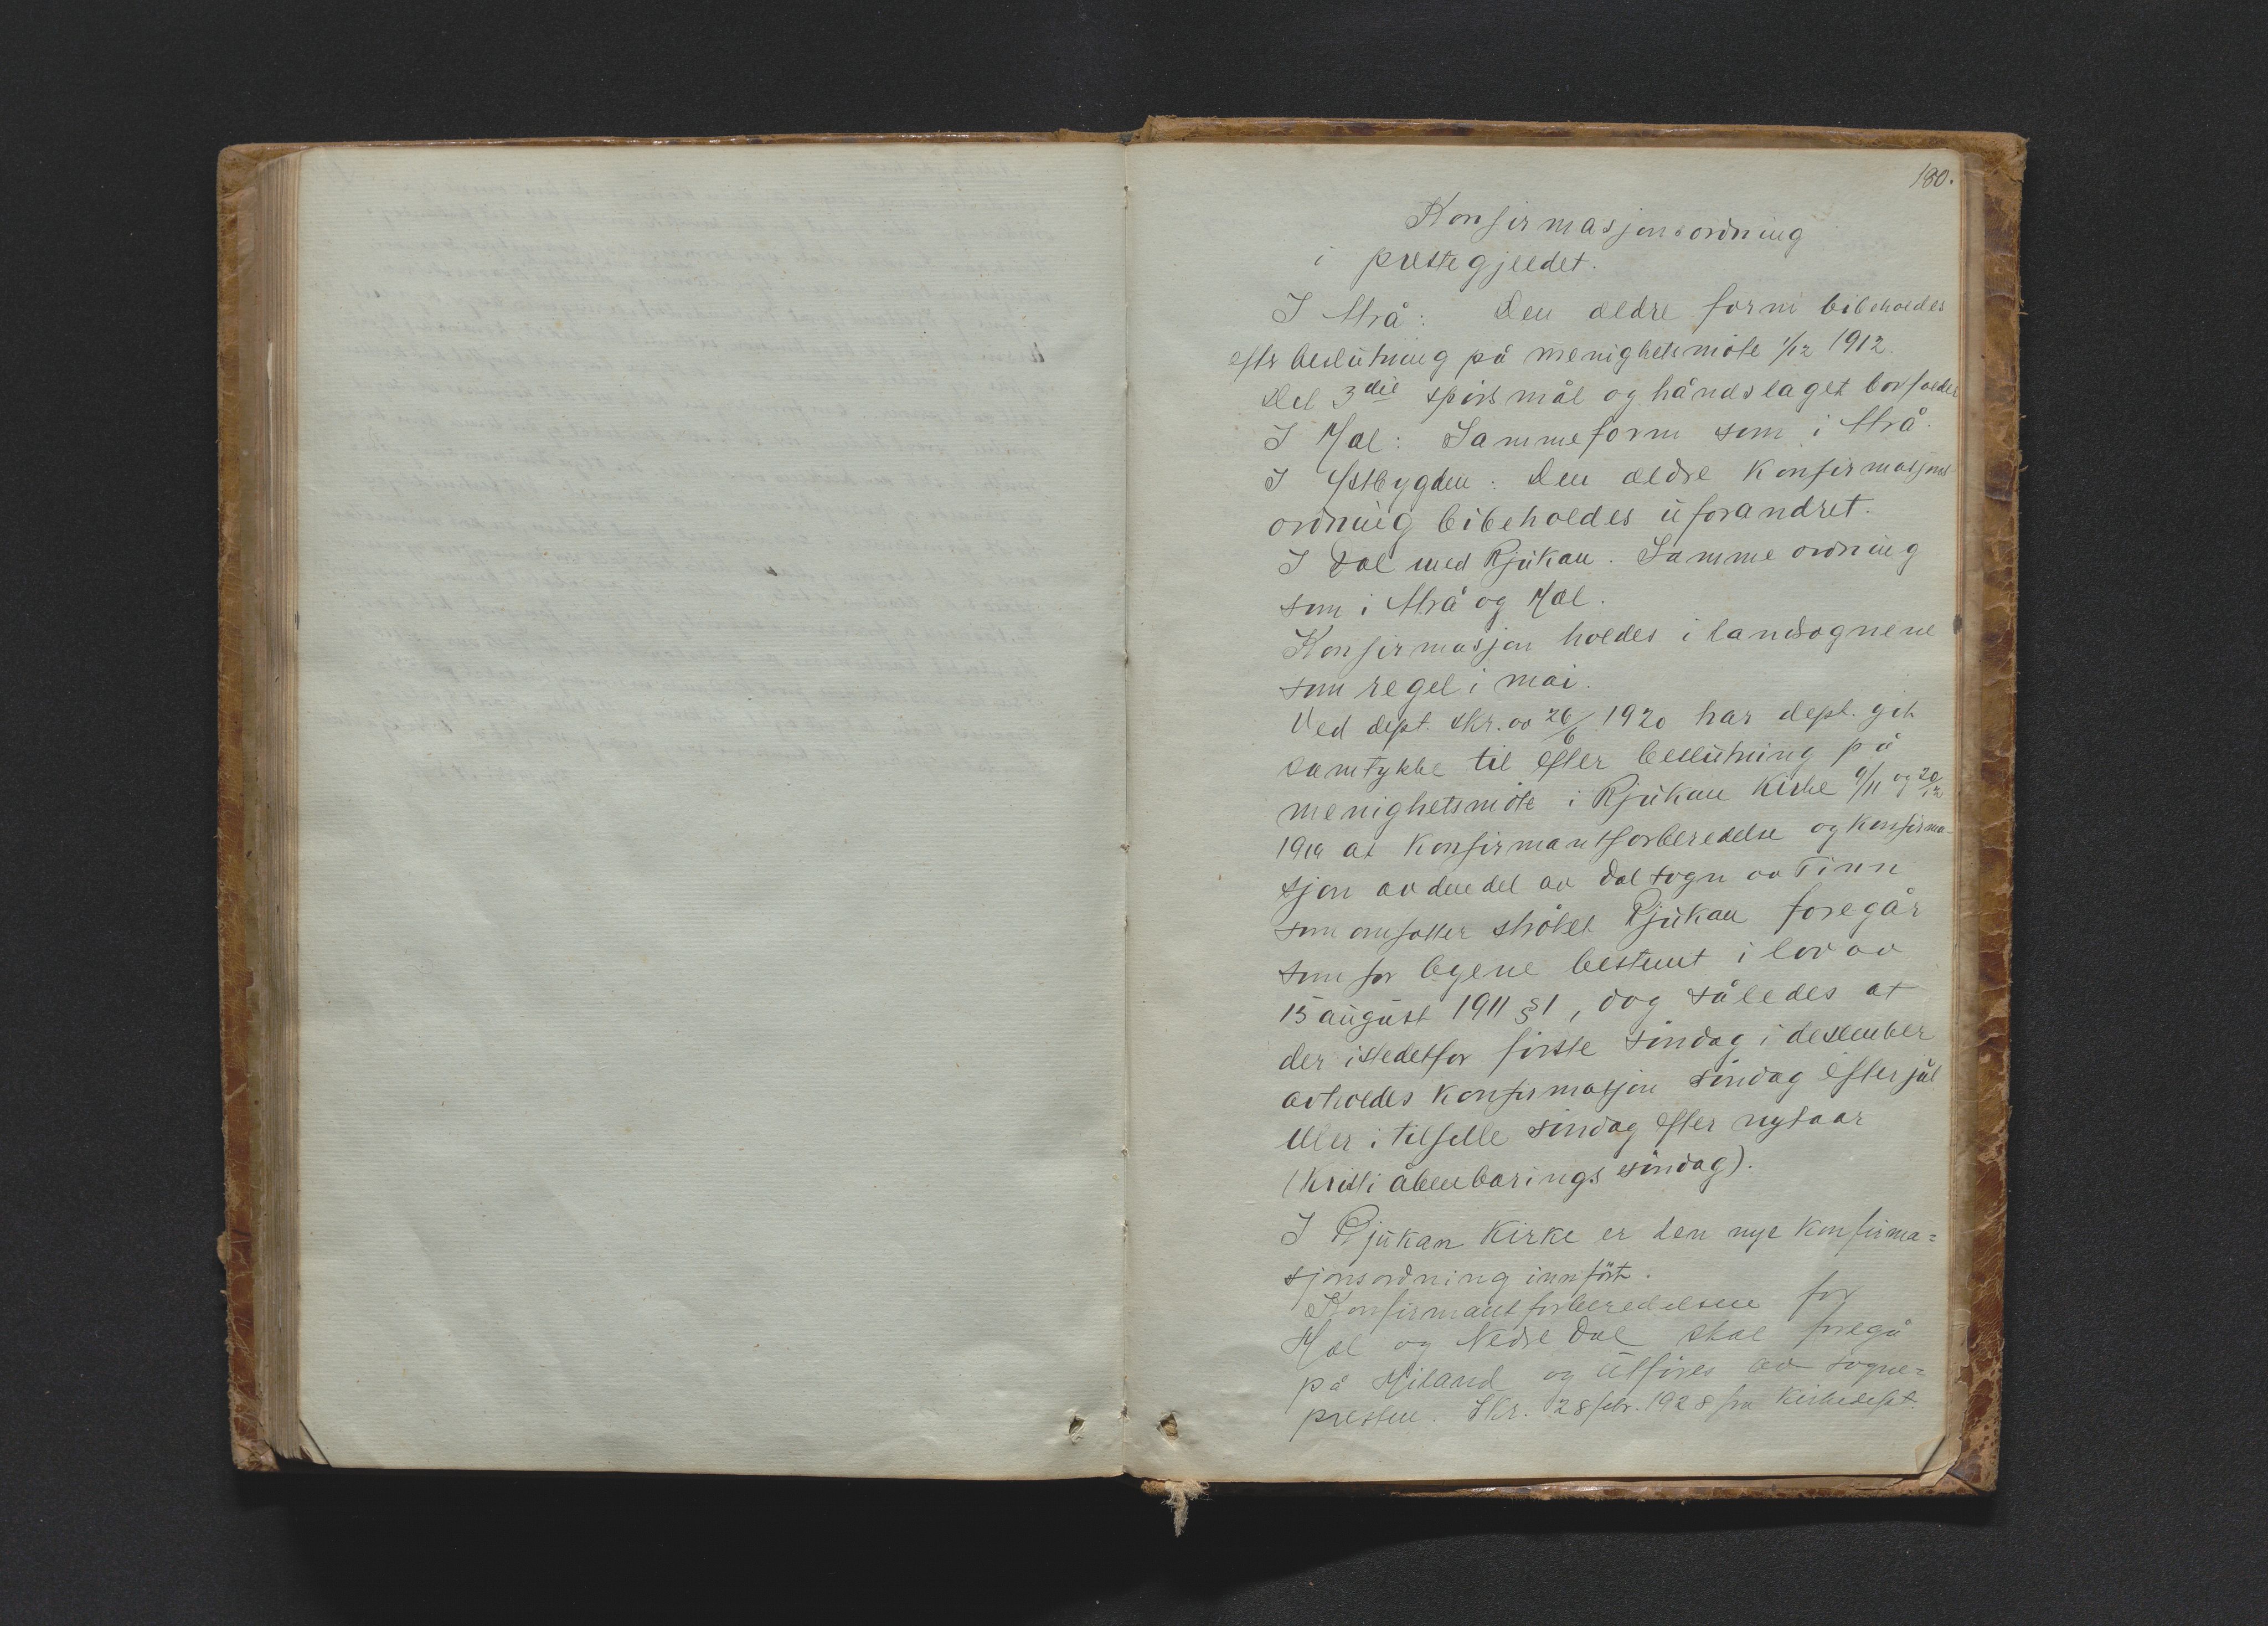 180.
Konfirmasjonsordning
i prestegjeldet.
I Atrå: Den ældre form bibeholdes
efter beslutning på menighetsmöte 1/12 1912.
Det 3die spörsmål og håndslaget bortfalder
I Mæl: Samme form som i Atrå.
I Östbygden: Den ældre konfirmasjons
ordning bibeholdes uforandret.
I Dal med Rjukan. Samme ordning
som i Atrå og Mæl.
Konfirmasjon holdes i landsognene
som regel i mai.
Ved dept. skr. av 26/6 1920 har dept. git
samtykke til efter beslutning på
menighetsmöte i Rjukan kirke 9/11 og 20/12
1919 at konfirmantforberedelse og konfirma-
sjon av den del av Dal sogn av Tinn
som omfatter ströket Rjukan foregår
som for byene bestemt i lov av
15 august 1911 § 1, dog således at
der istedetfor förste söndag i desember
avholdes konfirmasjon söndag efter jul
eller i tilfelle söndag efter nytaar
(Kristi åbenbarings söndag).
I Rjukan Kirke er den nye konfirma=
sjonsordning innfört.
Konfirmantforberedelsene for
Mæl og Nedre Dal skal foregå
på Miland og utföres av sogne=
presten. Skr. 28 febr. 1928 fra Kirkedept.